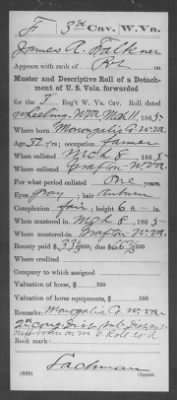 F 3rd Cav. W. Va.
James A. Falkner
Appears with rank of Pvt on
Muster and Descriptive Roll of a Detachment of U. S. Vols. forwarded
for the 3 Reg't W. Va. Cav. Roll dated
Wheeling W Va Mch 11, 1865
Where born Monogalia Co W Va
Age 32 y'rs; occupation farmer
When enlisted Mch 8, 1865
Where enlisted Grafton W Va
For what period enlisted one years
Eyes Gray; hair Auburn
Complexion fair; height 6 ft. in.
When mustered in Mch 8, 1865
Where mustered in Grafton W Va
Bounty paid $ 33 100; due $ 100
Where credited
Company to which assigned
Valuation of horse, $ 100
Valuation of horse equipments, $ 100
Remarks: Monogalia Co W Va
2nd Cong Dist
Book mark:
Lachman
(339) Copyist.